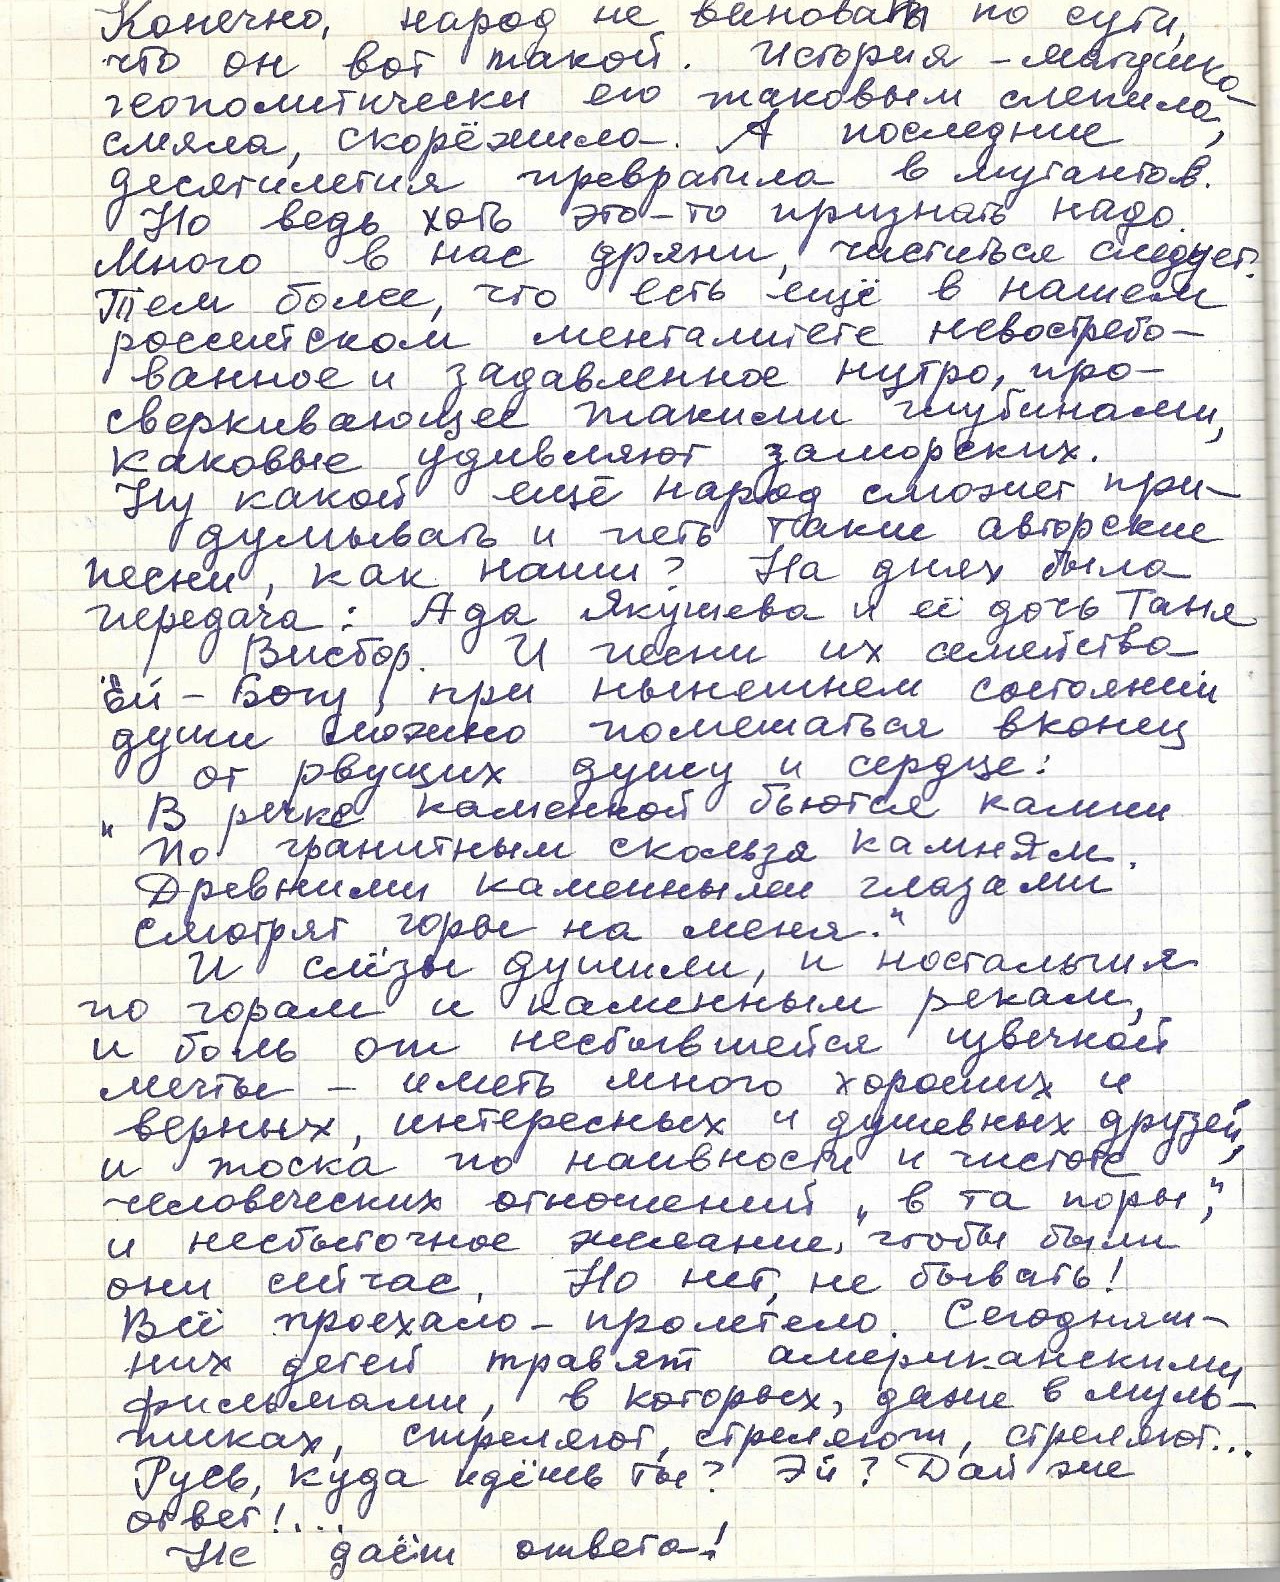 Конечно, народ не виноваты по сути,
что он вот такой. История – матушка
геополитически его таковым слепила,
смяла, скорёжила. А последние
десятилетия превратила в мутантов.
Но ведь хоть это-то признать надо.
Много в нас дряни, чиститься следует.
Тем более, что есть ещё в нашем
российском менталитете невостребо-
ванное и задавленное нутро, про-
сверкивающее такими глубинами,
каковые удивляют заморских.
Ну какой ещё народ сможет при-
думывать и петь такие авторские
песни, как наши? На днях была
передача: Ада Якушева и её дочь Таня
Визбор. И песни их семейства
ей-Богу, при нынешнем состоянии
души можно помешаться вконец
от рвущих душу и сердце:
„В речке каменной бьются камни
По гранитным скользя камням.
Древними каменными глазами
Смотрят горы на меня."
И слёзы душили, и ностальгия
по горам и каменным рекам,
и боль от несбывшейся извечной
мечты – иметь много хороших и
верных, интересных и душевных друзей,
и тоска по наивности и чистоте
человеческих отношений „в та поры",
и несбыточное желание, чтобы были
они сейчас. Но нет, не бывать!
Всё проехало – пролетело. Сегодняш-
них детей травят американскими
фильмами, в которых, даже в муль-
тиках, стреляют, стреляют, стреляют...
Русь, куда идёшь ты? Эй? Дай же
ответ!...
Не даёт ответа!